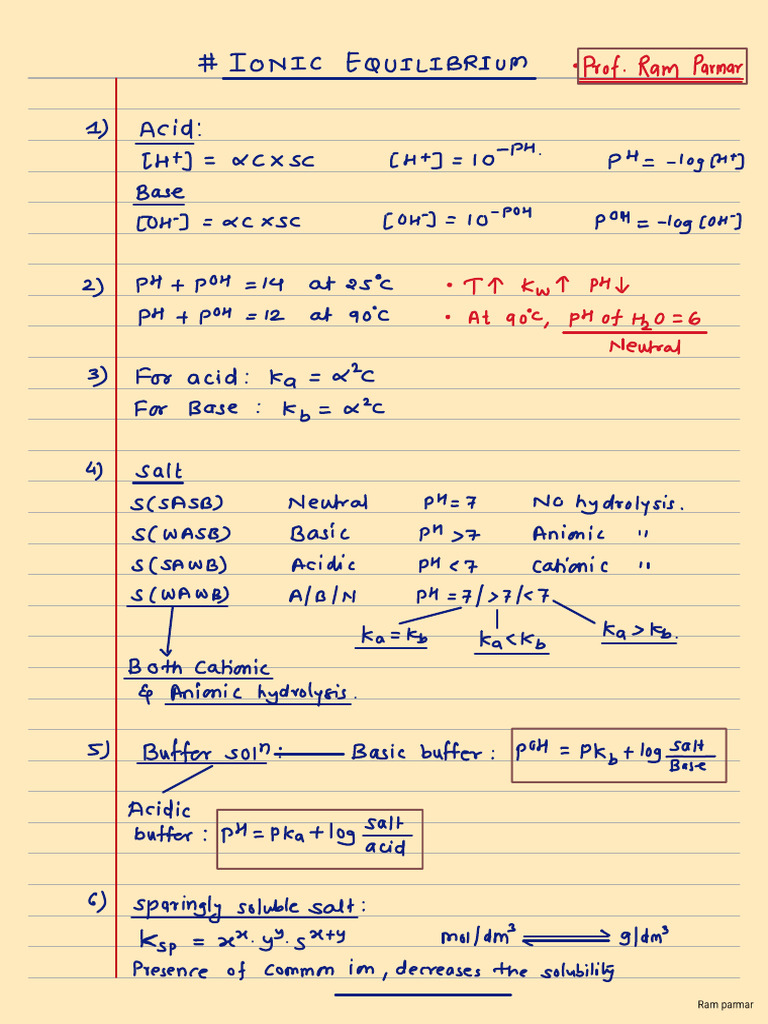 # IONIC EQUILIBRIUM
• Prof. Ram Parmar
1) Acid:
[H+] = αC x SC [H+] = 10^-PH. PH = -log[H+]
Base
[OH-] = αC x SC [OH-] = 10^-POH POH = -log[OH-]
2) PH + POH = 14 at 25°C • T↑ Kw↑ PH↓
PH + POH = 12 at 90°C • At 90°C, PH of H2O = 6
Neutral
3) For acid: Ka = α²C
For Base: Kb = α²C
4) Salt
S(SASB) Neutral PH = 7 No hydrolysis.
S(WASB) Basic PH > 7 Anionic "
S(SAWB) Acidic PH < 7 Cationic "
S(WAWB) A/B/N PH = 7/>7/<7
Ka = Kb Ka < Kb Ka > Kb.
Both Cationic
& Anionic hydrolysis.
5) Buffer solⁿ: Basic buffer: POH = PKb + log Salt/Base
Acidic
buffer: PH = PKa + log Salt/acid
6) Sparingly soluble salt:
Ksp = x^x . y^y . S^x+y mol/dm³ ⇌ g/dm³
Presence of common ion, decreases the solubility
Ram parmar